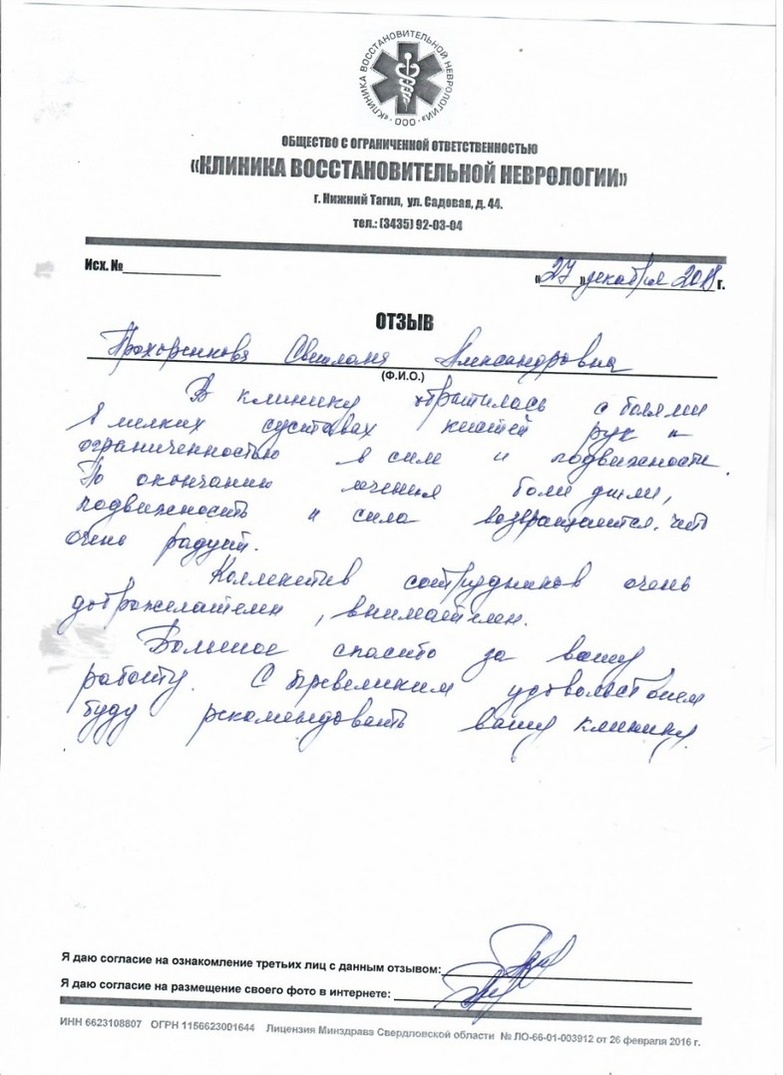 «КЛИНИКА ВОССТАНОВИТЕЛЬНОЙ НЕВРОЛОГИИ» · ООО ·
ОБЩЕСТВО С ОГРАНИЧЕННОЙ ОТВЕТСТВЕННОСТЬЮ
«КЛИНИКА ВОССТАНОВИТЕЛЬНОЙ НЕВРОЛОГИИ»
г. Нижний Тагил, ул. Садовая, д. 44.
тел.: (3435) 92-03-04
Исх. №
«27» декабря 2018 г.
ОТЗЫВ
Прохоренкова Светлана Александровна
(Ф.И.О.)
В клинику обратилась с болями
в мелких суставах кистей рук и
ограниченностью в силе и подвижности.
По окончанию лечения боли ушли,
подвижность и сила возвращается, что
очень радует.
Коллектив сотрудников очень
доброжелателен, внимателен.
Большое спасибо за вашу
работу. С превеликим удовольствием
буду рекомендовать вашу клинику.
Я даю согласие на ознакомление третьих лиц с данным отзывом:
Я даю согласие на размещение своего фото в интернете:
ИНН 6623108807 ОГРН 1156623001644 Лицензия Минздрава Свердловской области № ЛО-66-01-003912 от 26 февраля 2016 г.